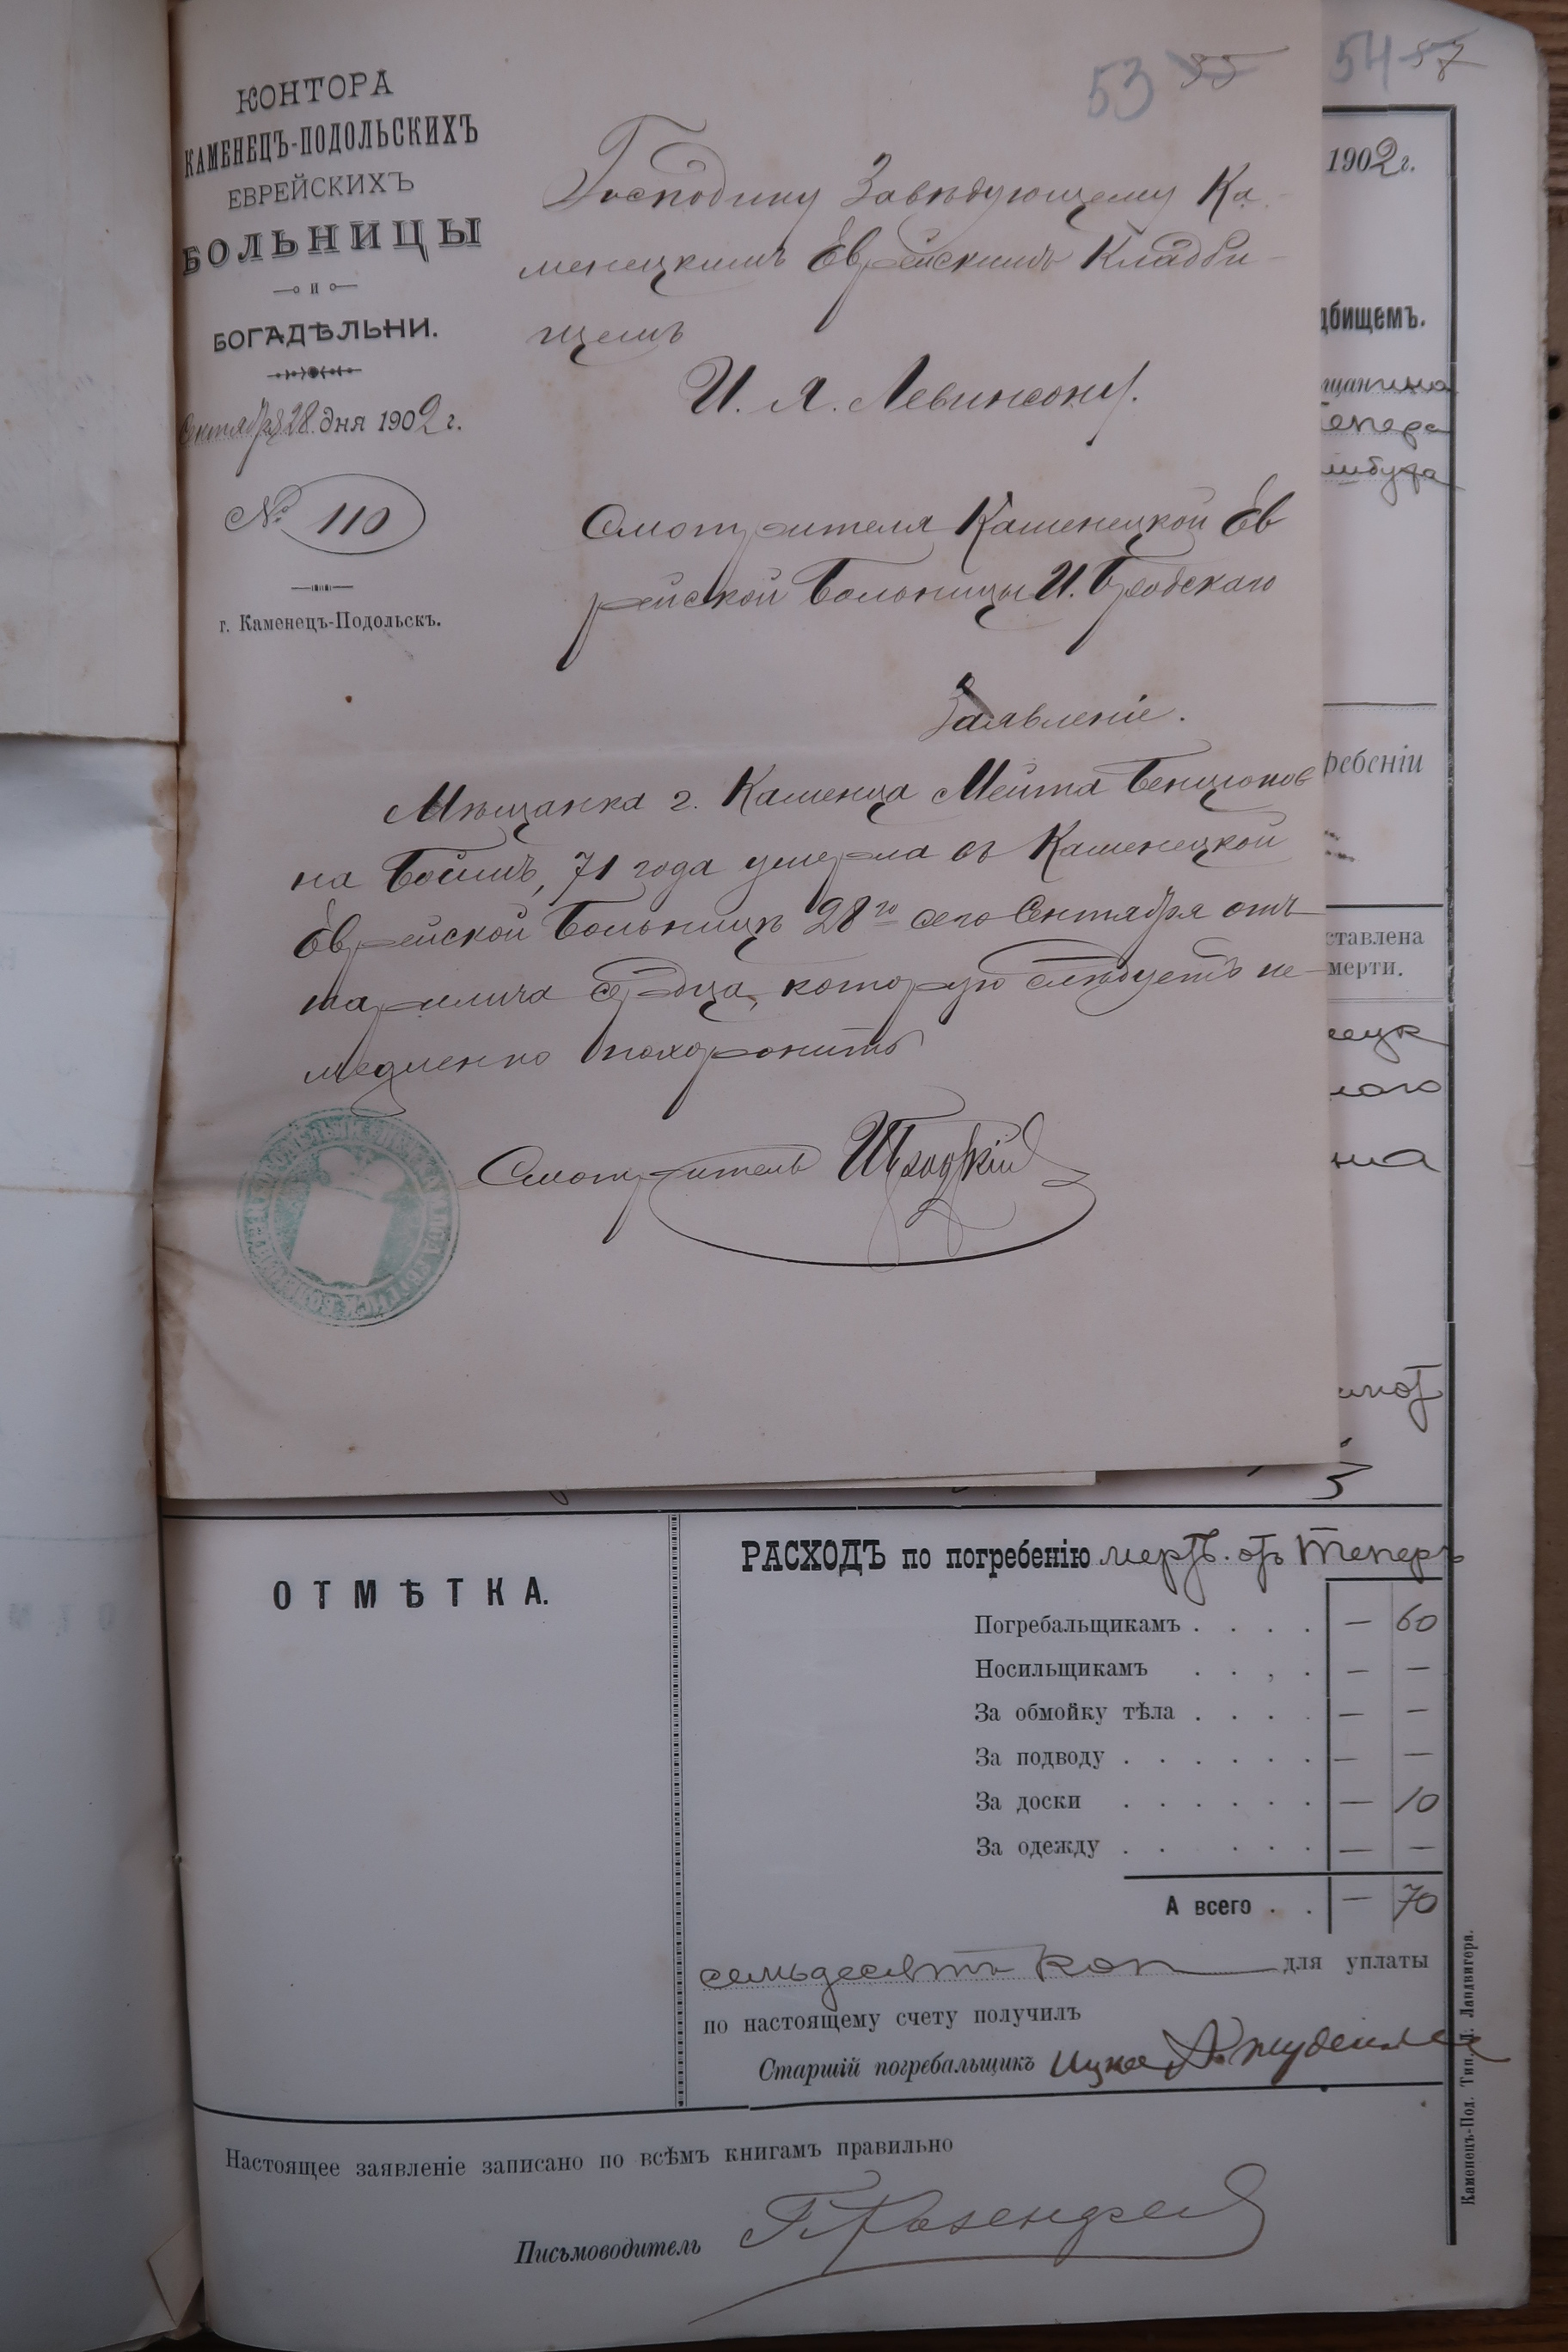 КОНТОРА
КАМЕНЕЦЪ-ПОДОЛЬСКИХЪ
ЕВРЕЙСКИХЪ
БОЛЬНИЦЫ
И
БОГАДѢЛЬНИ.
Сентября 28 дня 1902 г.
№ 110
г. Каменецъ-Подольскъ.
53 55
Господину Завѣдующему Ка-
менецкимъ Еврейскимъ Кладби-
щемъ
И. Я. Левинсону.
Смотрителя Каменецкой Ев
рейской Больницы И. Бродскаго
Заявленіе.
Мѣщанка г. Каменца Мейта Бенціонов
на Боймъ, 71 года умерла въ Каменецкой
Еврейской Больницѣ 28го сего Сентября отъ
паралича сердца, которую слѣдуетъ не-
медленно похоронить
Смотритель ИБродскій
54 57
1902 г.
дбищемъ.
щанина
Тепера
ребеніи
ставлена
мерти.
лого
на
ОТМѢТКА.
РАСХОДЪ по погребенію мертв. отъ Теперъ
Погребальщикамъ . . . . — 60
Носильщикамъ . . , . — —
За обмойку тѣла . . . . — —
За подводу . . . . . . — —
За доски . . . . . . — 10
За одежду . . . . . — —
А всего . . — 70
семьдесятъ коп для уплаты
по настоящему счету получилъ
Старшій погребальщикъ Ицко
Настоящее заявленіе записано по всѣмъ книгамъ правильно
Письмоводитель
Каменецъ-Под. Тип. Д. Ландвигера.